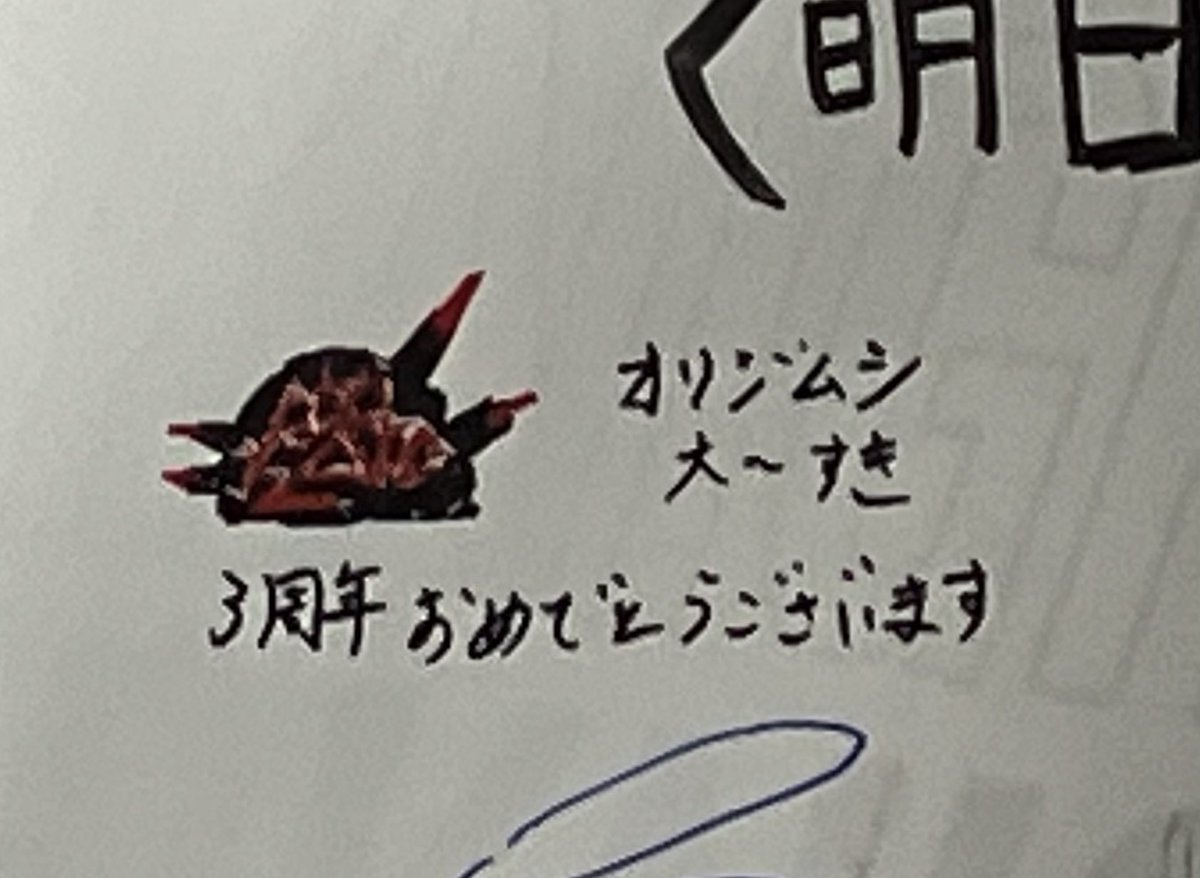 〈明日
オリジムシ
大～すき
3周年おめでとうございます